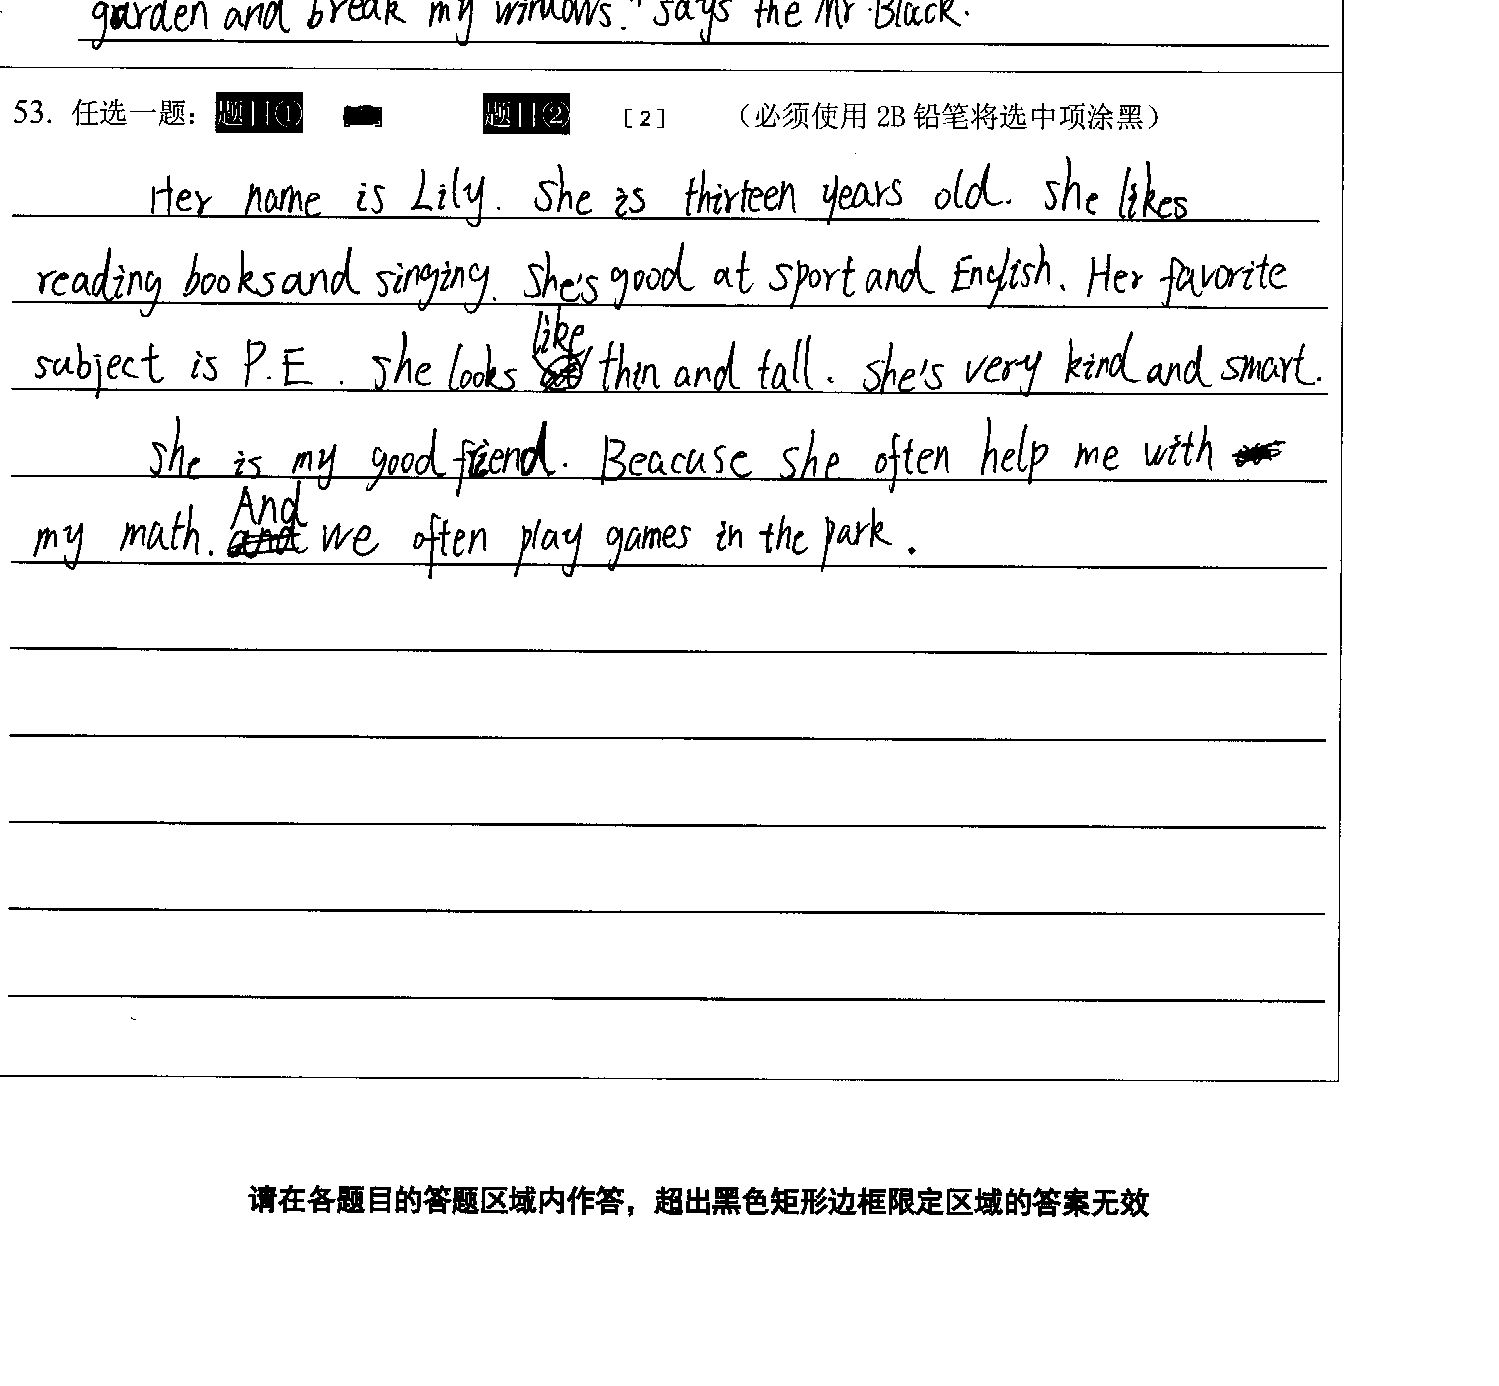 garden and break my windows." says the Mr. Black.
53. 任选一题： 题目① 题目② [2] （必须使用 2B 铅笔将选中项涂黑）
Her name is Lily. She is thirteen years old. She likes
reading books and singing. She's good at sport and English. Her favorite
subject is P.E. She looks like thin and tall. She's very kind and smart.
She is my good fiend. Beacuse she often help me with
my math. And we often play games in the park.
请在各题目的答题区域内作答，超出黑色矩形边框限定区域的答案无效